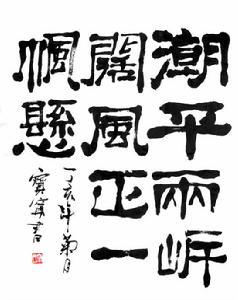 潮平兩岸
闊風正一
帆懸
丁亥年菊月
寶寅書